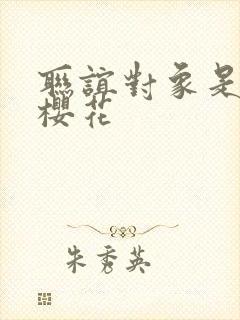 聯誼對象是
櫻花
朱秀英